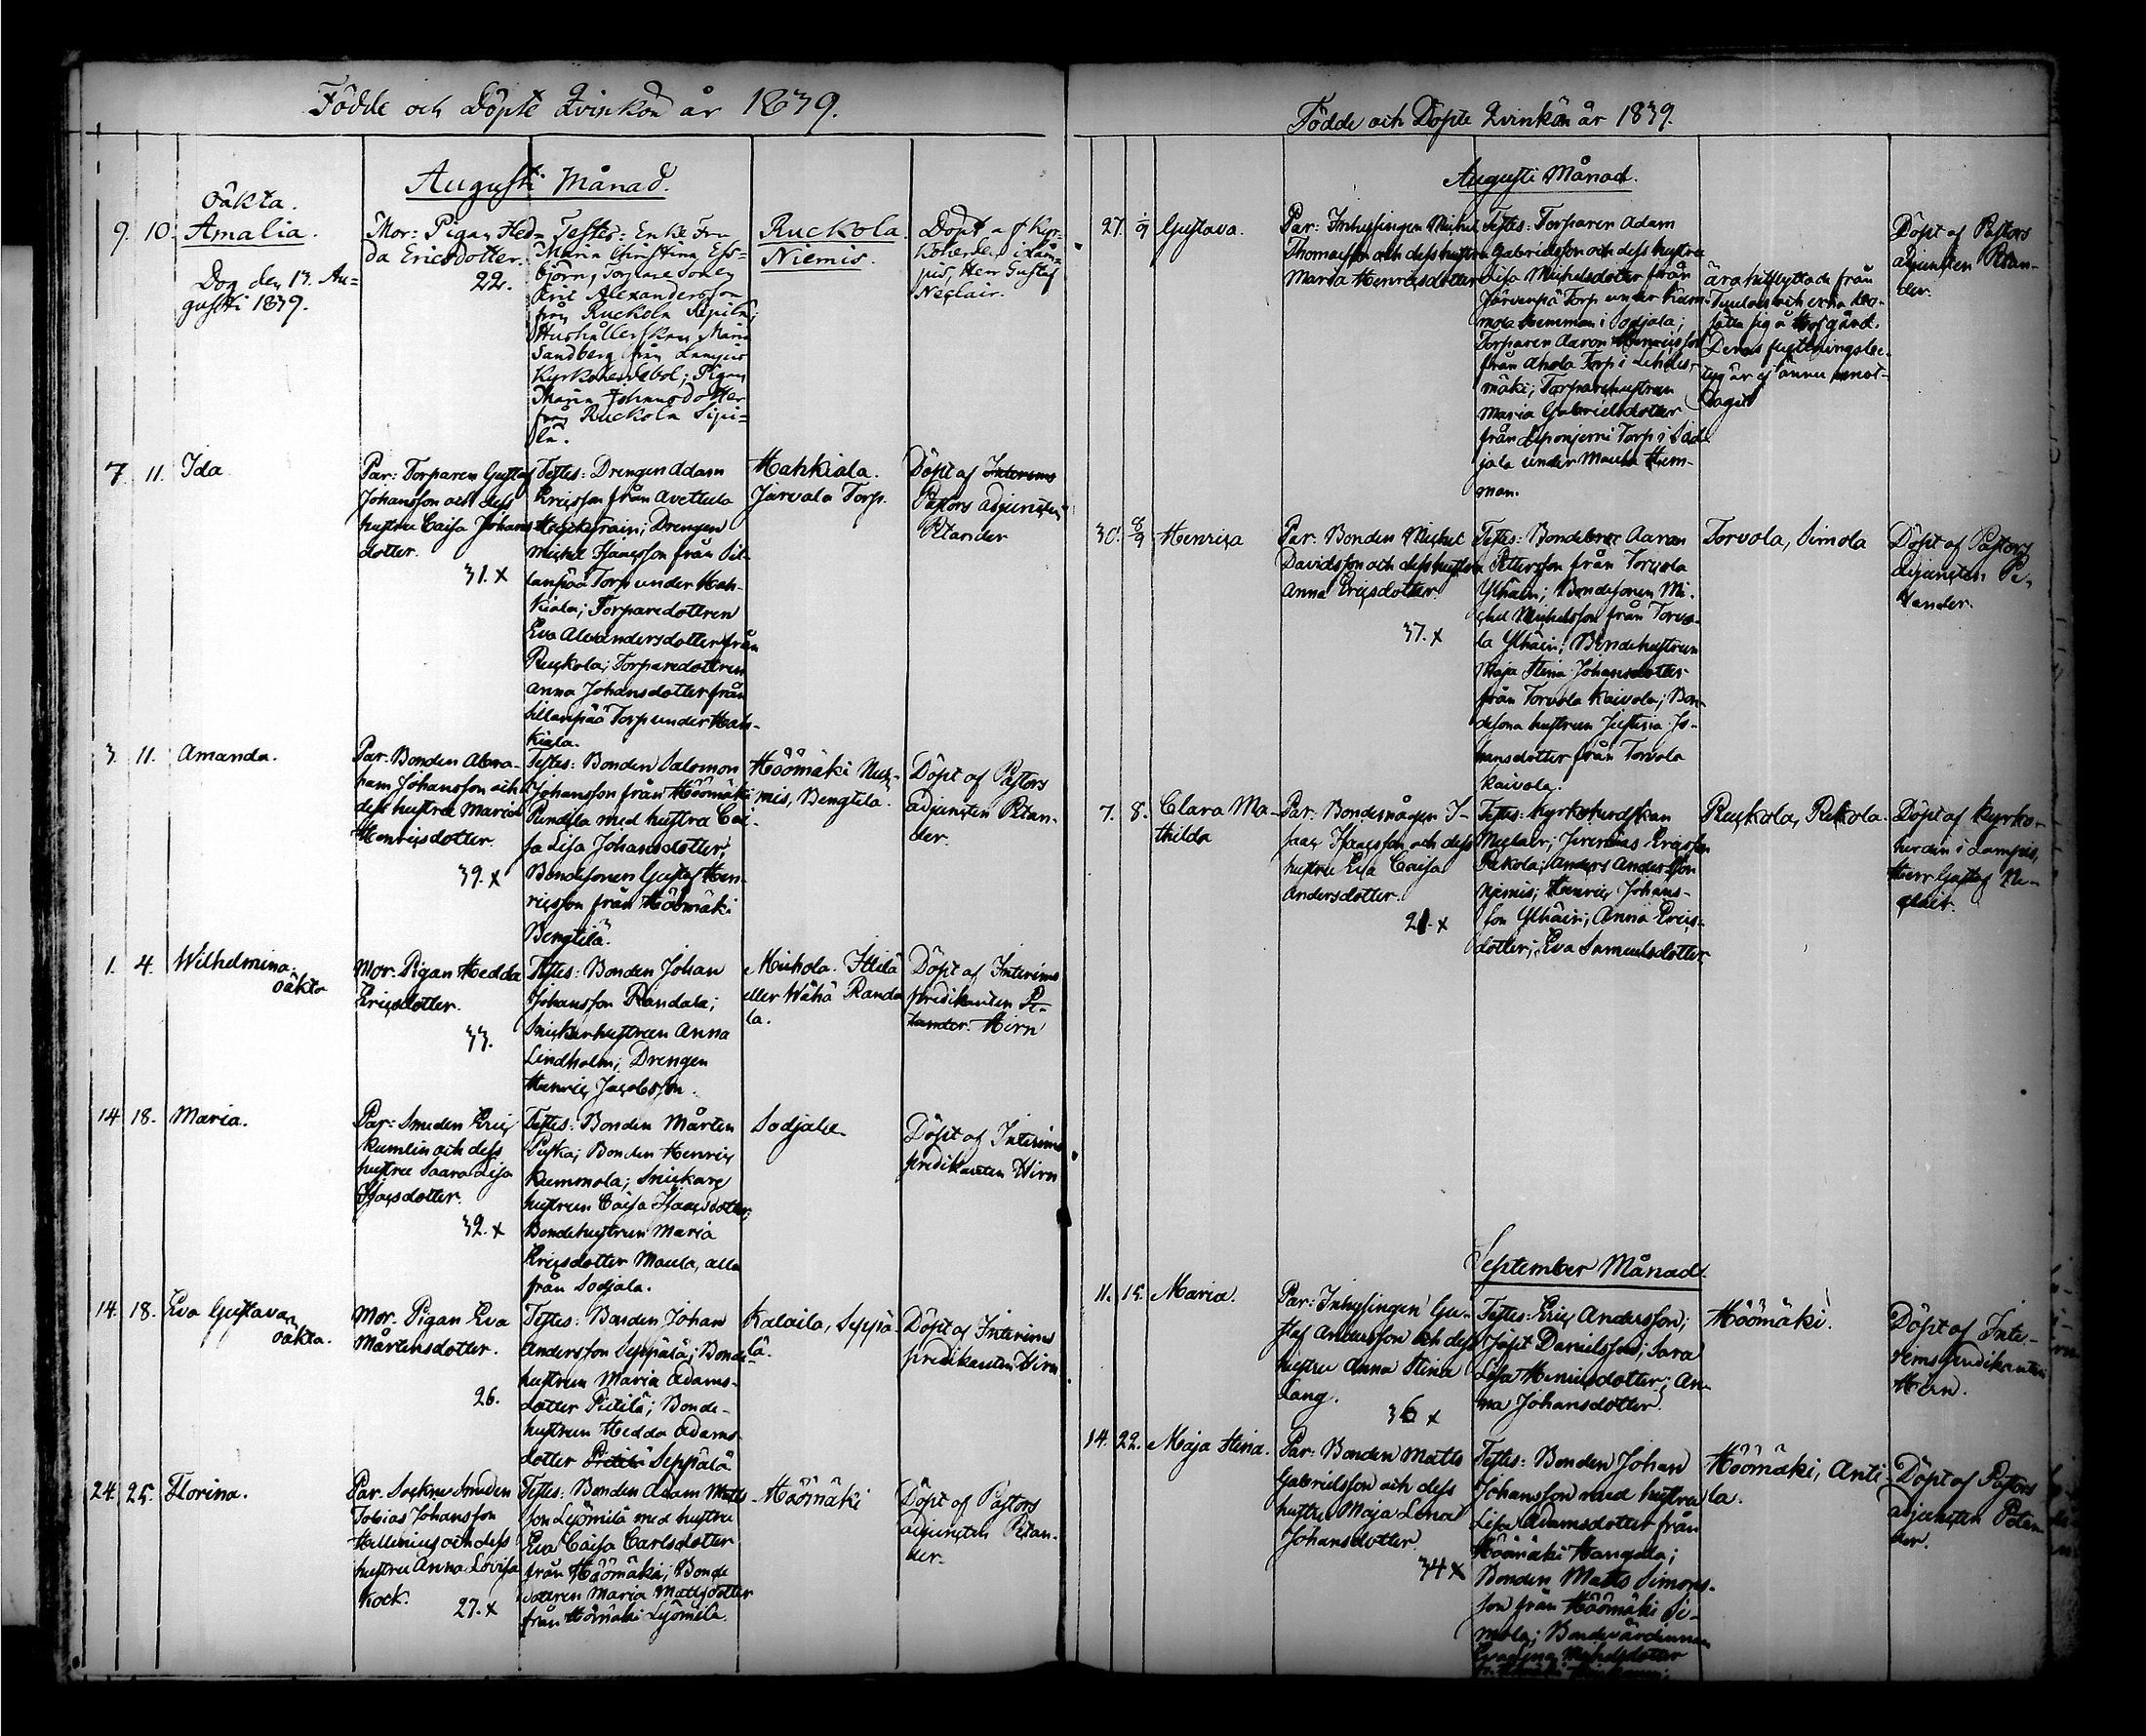 Födde och Döpte Qvinkön år 1839.
Augusti Månad.
oäkta.
9. 10. Amalia.
Dog den 13. Au=
gusti 1839.
Mor: Pigan Hed=
da Ericsdotter.
22.
Testes: Enke Fru
Maria Christina Ess=
björn, Torpare Sonen
Eric Alexandersson
från Ruckola Sipilä;
Hushållerskan Maria
Sandberg från Lampis
Kyrkoherdebol; Pigan
Maria Johansdotter
från Ruckola Sipi=
lä.
Ruckola
Niemis.
Döpt af Kyr=
koherden i Lam=
pis, Herr Gustaf
Neclair.
7. 11. Ida
Par: Torparen Gustaf
Johansson och dess
hustru Caisa Johans
dotter.
31. x
Testes: Drengen Adam
Ericsson från Avettula
Drengen
Michel Isaacsson från Sil-
lanpää Torp under Hah-
kiala; Torparedottren
Eva Alexandersdotter från
Ruckola; Torparedottren
Anna Johansdotter från
Sillanpää Torp under Hah-
kiala.
Hahkiala.
Jarvala Torp.
Döpt af Interims
Pastors Adjuncten
Petander
3. 11. Amanda.
Par: Bonden Abra-
ham Johansson och
dess hustru Maria
Henricsdotter.
39. x
Testes: Bonden Salomon
Johansson från Höömäki
med hustru Cai-
sa Lisa Johansdotter;
Bondesonen Gustaf Hen-
ricsson från Höömäki
Bengtilä.
Höömäki
Bengtilä.
Döpt af Pastors
adjuncten Petan-
der.
1. 4. Wilhelmina.
oäkta
Mor: Pigan Hedda
Ericsdotter.
33.
Testes: Bonden Johan
Johansson Randala;
Snickarhustrun Anna
Lindholm; Drengen
Henric Jacobsson.
eller Wähä Randa
la.
Döpt af Interims
predikanten Pe-
tander. Hirn
14. 18. Maria.
Par: Smeden Eric
Kumlin och dess
hustru Saara Lisa
Isacsdotter.
32. x
Testes: Bonden Mårten
Bonden Henric
Kummola; Snickare
hustrun Caisa Isaacsdotter;
Bondehustrun Maria
Ericsdotter Maula, alla
från Sodjala.
Sodjala
Döpt af Interims
predikanten Hirn
14. 18. Eva Gustava,
oäkta.
Mor: Pigan Eva
Mårtensdotter.
26.
Testes: Bonden Johan
Andersson Seppälä; Bonde-
hustrun Maria Adams-
dotter Pietilä; Bonde-
hustrun Hedda Adams-
dotter Pietilä Seppälä
Kalaila, Seppä-
lä.
Döpt af Interims
predikanten Hirn
24. 25. Florina.
Par: Sockne Smeden
Tobias Johansson
Hellenius och dess
hustru Anna Lovisa
Kock.
27. x
Testes: Bonden Adam Matts
son Lyömilä med hustru
Eva Caisa Carlsdotter
från Höömäki; Bonde
dottren Maria Mattsdotter
från Höömäki Lyömilä.
Höömäki
Döpt af Pastors
adjuncten Petan-
der.
Födde och Döpte Qvinkön år 1839.
Augusti Månad.
27. 1/9 Gustava.
Par: Inhysingen Michel
Thomasson och dess hustru
Maria Henricsdotter
Testes: Torparen Adam
Gabrielsson och dess hustru
Lisa Michelsdotter från
Järvenpä Torp under Kum-
mola hemman i Sodjala;
Torparen Aaron Henricsson
från Ahola Torp i Lehdes-
mäki; Torparehustrun
Maria Gabrielsdotter
från Torp i Sod-
jala under Maula Hem-
man.
ära hitflyttade från
Tuulois och
sätta sig å Hofgård.
Deras flyttningsbe-
tyg är ej ännu emot-
tagit
Döpt af Pastors
adjuncten Petan-
der.
30. 8/9 Henrica
Par: Bonden Michel
Davidsson och dess hustru
Anna Ericsdotter.
37. x
Testes: Bonden Aaron
Petersson från Torvola
Ylhäin; Bondesonen Mi-
chel Michelsson från Torvo-
la Ylhäin; Bondehustrun
Maja Stina Johansdotter
från Torvola Kaivola; Bon-
desons hustrun Justina Jo-
hansdotter från Torvola
Kaivola.
Torvola, Simola
Döpt af Pastors
adjuncten Pe-
tander.
7. 8. Clara Ma-
thilda
Par: Bondemågen I-
saac Isaacsson och dess
hustru Eva Caisa
Andersdotter.
21. x
Testes: Kyrkoherdskan
Neclair; Jeremias Ericsson
Rekola; Anders Andersson
Niemis; Henric Johans-
son Ylhäin; Anna Erics-
dotter; Eva Samuelsdotter.
Ruckola, Rekola.
Döpt af Kyrko-
herden i Lampis,
Herr Gustaf Ne-
clair.
September Månad.
11. 15. Maria.
Par: Inhysingen Gu-
staf Andersson och dess
hustru Anna Stina
Lang.
36 x
Testes: Eric Andersson;
Josef Danielsson; Sara
Lisa Henricsdotter; An-
na Johansdotter.
Höömäki.
Döpt af Inte-
rims predikanten
Hirn.
14. 22. Maja Stina.
Par: Bonden Matts
Gabrielsson och dess
hustru Maja Lena
Johansdotter.
34 x
Testes: Bonden Johan
Johansson med hustru
Lisa Adamsdotter från
Höömäki Hangela;
Bonden Matts Simons-
son från Höömäki Si-
mola; Bondevärdinnan
Michelsdotter
Höömäki, Anti
la.
Döpt af Pastors
adjuncten Petan
der.